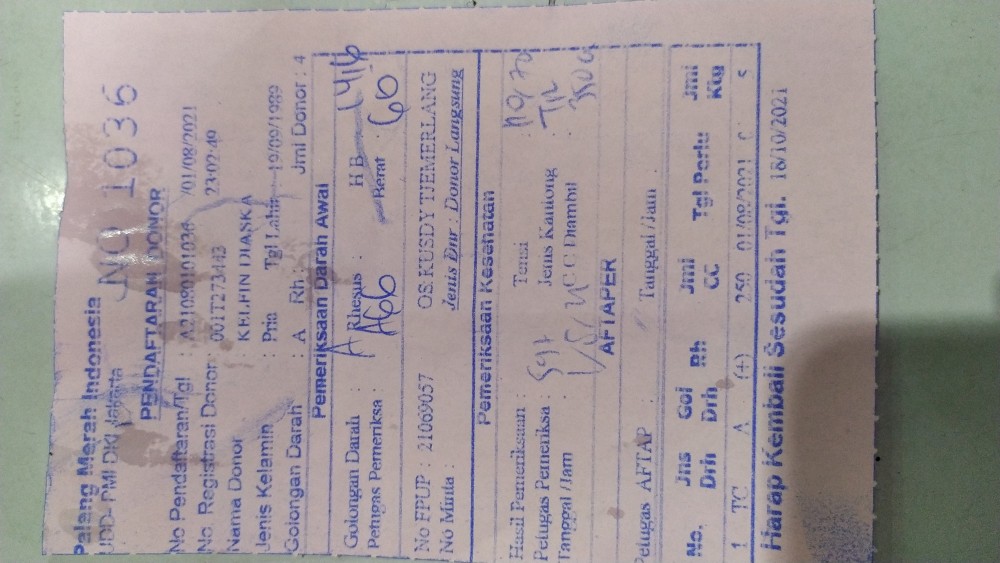 Palang Merah Indonesia
UDD-PMI DKI Jakarta NO 1036
PENDAFTARAN DONOR
No Pendaftaran/Tgl : A21080101036 /01/08/2021
No. Registrasi Donor : 001T273443 23:02:49
Nama Donor : KELFIN DIASKA
Jenis Kelamin : Pria Tgl Lahir 19/09/1989
Golongan Darah : A Rh : Jml Donor : 4
Pemeriksaan Darah Awal
Golongan Darah : A Rhesus : HB
Petugas Pemeriksa : Berat : 60
No FPUP : 21069057 OS:KUSDY TJEMERLANG
No Minta : Jenis Dnr : Donor Langsung
Pemeriksaan Kesehatan
Hasil Pemeriksaan : Tensi : 110/70
Petugas Pemeriksa : Jenis Kantong :
Tanggal /Jam : CC Diambil :
AFTAPER
Petugas AFTAP : Tanggal /Jam :
No. Jns Drh Gol Drh Rh Jml CC Tgl Perlu Jml Ktg
1 TC A (+) 250 01/08/2021
Harap Kembali Sesudah Tgl. 15/10/2021